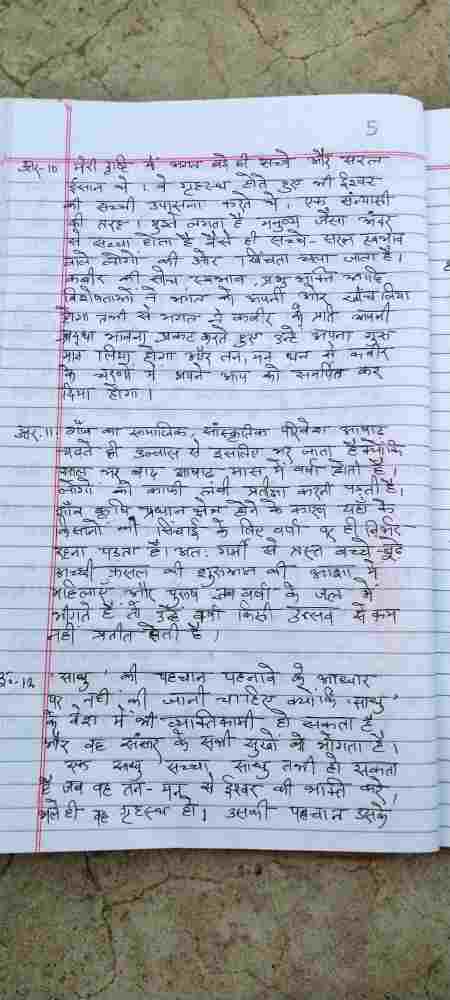 5
उत्तर-10 मेरी दृष्टि में भगत बड़े ही सच्चे और सरल
ईसान थे । वे गृहस्थ होते हुए भी ईश्वर
की सच्ची उपासना करते थे । एक सन्यासी
की तरह । मुझे लगता है मनुष्य जैसा अंदर
से सच्चा होता है वैसे ही सच्चे-सरल स्वभाव
वाले लोगो की ओर खिंचता चला जाता है।
कबीर की सोच, स्वभाव, प्रभु भक्ति आदि
विशेषताओं ने भगत को अपनी ओर खींच लिया
होगा तभी से भगत ने कबीर के प्रति अपनी
श्रद्धा भावना प्रकट करते हुए उन्हे अपना गुरु
मान लिया होगा और तन, मन, धन से कबीर
के चरणों में अपने आप को समर्पित कर
दिया होगा।
उत्तर-11 गाँव का सामाजिक, सांस्कृतिक परिवेश आषाढ़
चढ़ते ही उल्लास से इसलिए भर जाता है क्योंकि
साल भर बाद आषाढ़ मास में वर्षा होती है।
लोगो को काफी लंबी प्रतीक्षा करनी पड़ती है।
गाँव कृषि प्रधान क्षेत्र होने के कारण यहाँ के
किसानो को सिंचाई के लिए वर्षा पर ही निर्भर
रहना पडता है। अतः गर्मी से त्रस्त बच्चे-बूढ़े
अच्छी फसल की शुरुआत की आशा में
महिलाएँ और पुरुष जब वर्षा के जल में
भीगते है तो उन्हे वर्षा किसी उत्सव से कम
नहीं प्रतीत होती है।
उ.-12 'साधु' की पहचान पहनावे के आधार
पर नहीं की जानी चाहिए क्योंकि 'साधु'
के वेश में भी व्यक्ति कामी हो सकता है
और वह संसार के सभी सुखो को भोगता है।
एक साधु सच्चा साधु तभी हो सकता
है जब वह तन-मन से ईश्वर की भक्ति करे,
भले ही वह गृहस्थ हो। उसकी पहचान उसके